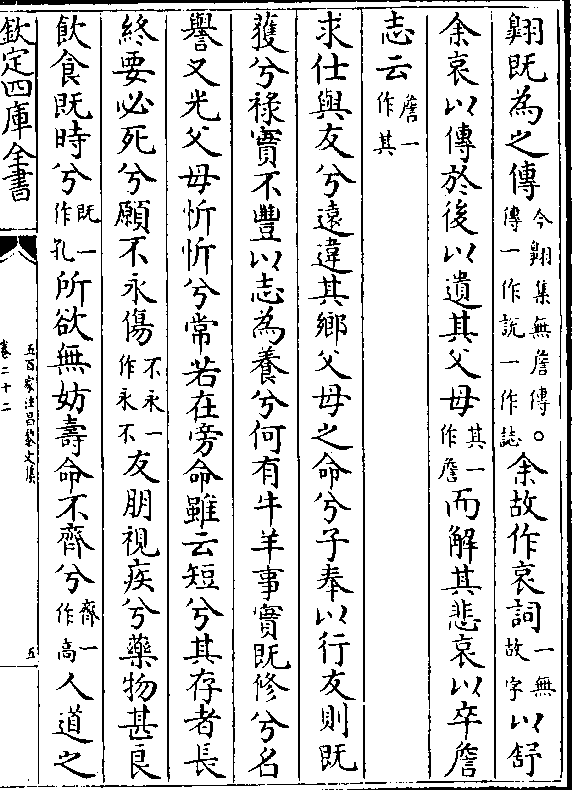 翺既為之傳今翺集無詹傳。傳一作説一作誌余故作哀詞一無故字以舒
余哀以傳於後以遺其父母其一作詹而解其悲哀以卒詹
志云詹一作其
求仕與友兮遠違其鄉父母之命兮子奉以行友則既
獲兮祿實不豐以志為養兮何有牛羊事實既修兮名
譽又光父母忻忻兮常若在旁命雖云短兮其存者長
終要必死兮願不永傷不永一作永不友朋視疾兮藥物甚良
飲食既時兮既一作孔所欲無妨壽命不齊兮齊一作高人道之
欽定四庫全書
五百家注昌黎文集
卷二十二
五